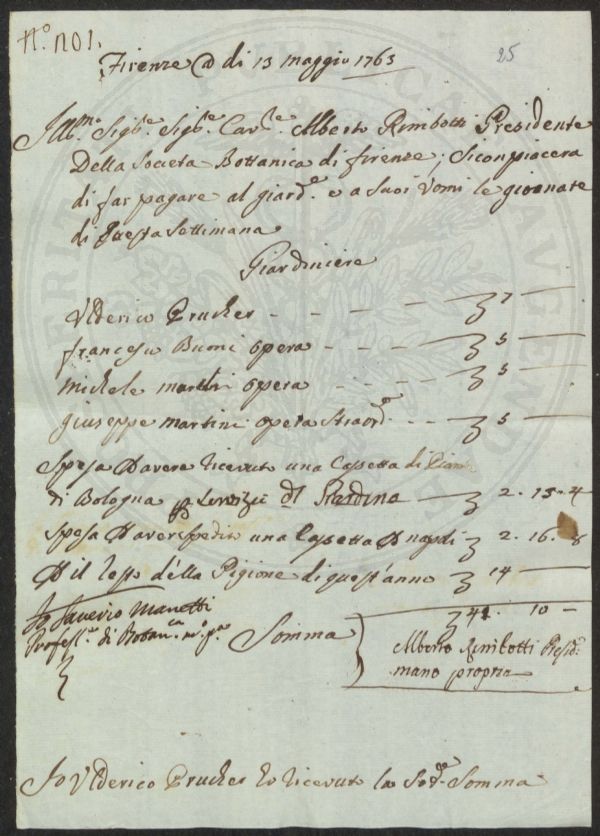 N.° 1101.
25
Firenze a dì 13 maggio 1763
Ill.mo Sig.re Sig.re Cav.re Alberto Rimbotti Presidente
Della Società Bottanica di firenze; Si conpiacera
di far pagare al giard.e e a Suoi Vomi le giornate
di Questa Settimana
Giardiniere
Vlderico Prucker - - - - 3 7 —
francesco Buoni opera - - - - 3 5 —
michele martini opera - - - - 3 5 —
giuseppe martini opera Straord.e - - 3 5 —
Spesa D avere ricevuto una Cassetta di Piante
di Bologna p Servizie dl Giardino — 3 2. 13. 4
Spesa D aver spedito una Cassetta D 3 2. 16. 8
D il resto della Pigione di quest'anno 3 14 —
Io Saverio Manetti
Profess.re di Botan.ca m.o p.a
Somma 3 41. 10 —
Alberto Rimbotti Presid.e
mano propria
Io Vlderico Prucker ho ricevuto la Sod.e Somma